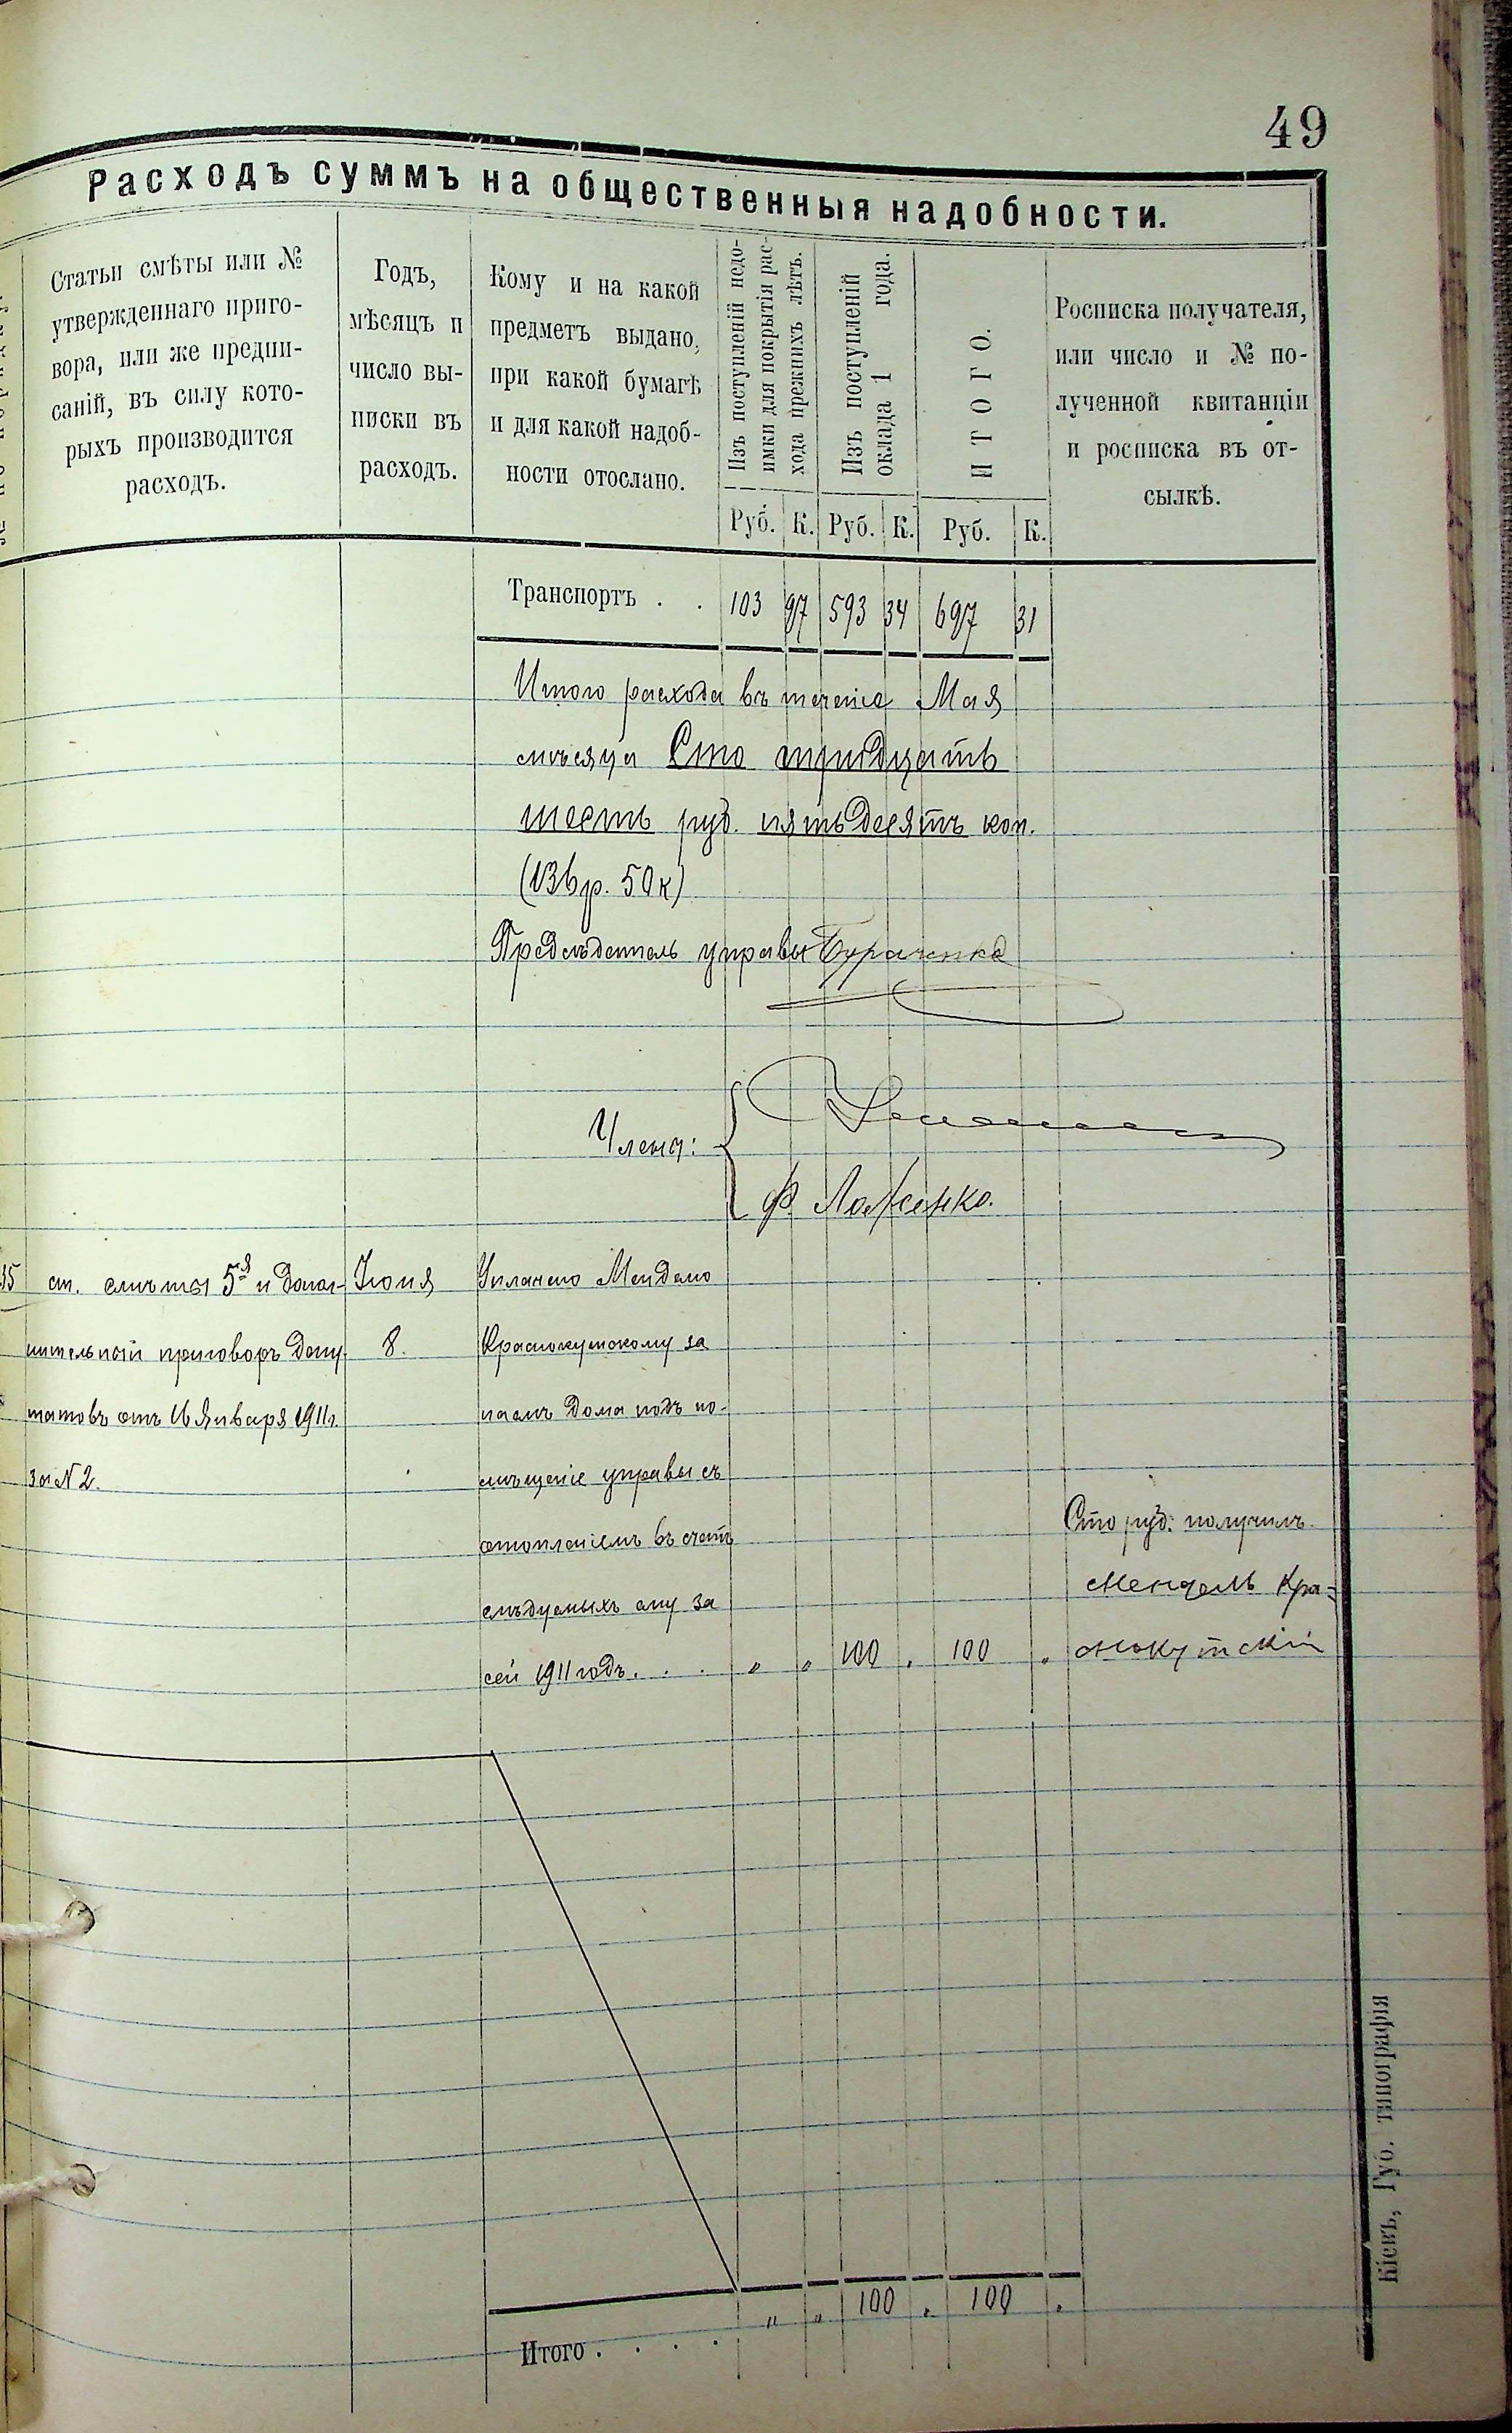 49
Расходъ суммъ на общественныя надобности.
Статьи смѣты или №
утвержденнаго приго-
вора, или же предпи-
саній, въ силу кото-
рыхъ производится
расходъ.
Годъ,
мѣсяцъ и
число вы-
писки въ
расходъ.
Кому и на какой
предметъ выдано,
при какой бумагѣ
и для какой надоб-
ности отослано.
Изъ поступленій недо-
имки для покрытія рас-
хода прежнихъ лѣтъ.
Изъ поступленій
оклада 1 года.
ИТОГО.
Росписка получателя,
или число и № по-
лученной квитанціи
и росписка въ от-
сылкѣ.
Руб. К. Руб. К. Руб. К.
Транспортъ . . 103 97 593 34 697 31
Итого расхода въ теченіе Мая
мѣсяца Сто тридцать
шесть руб. пятьдесятъ коп.
(136 р. 50 к)
Предсѣдатель управы Бураченко
Члены:
Ф. Лаженко.
35 ст. смѣты 5я и допол-
нительный приговоръ депу-
татовъ отъ 16 Января 1911 г.
за N 2.
Іюня
8.
Уплачено Менделю
Краснокутскому за
наемъ дома подъ по-
мѣщеніе управы съ
отопленіемъ въ счетъ
слѣдуемыхъ ему за
сей 1911 годъ. . . „ „ 100 „ 100 „
Сто руб. получилъ
Мендель Кра-
снокутскій
Итого . . . . „ „ 100 „ 100 „
Кіевъ, Губ. типографія